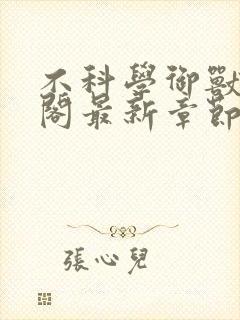 不科學御獸
閣最新章節
張心兒